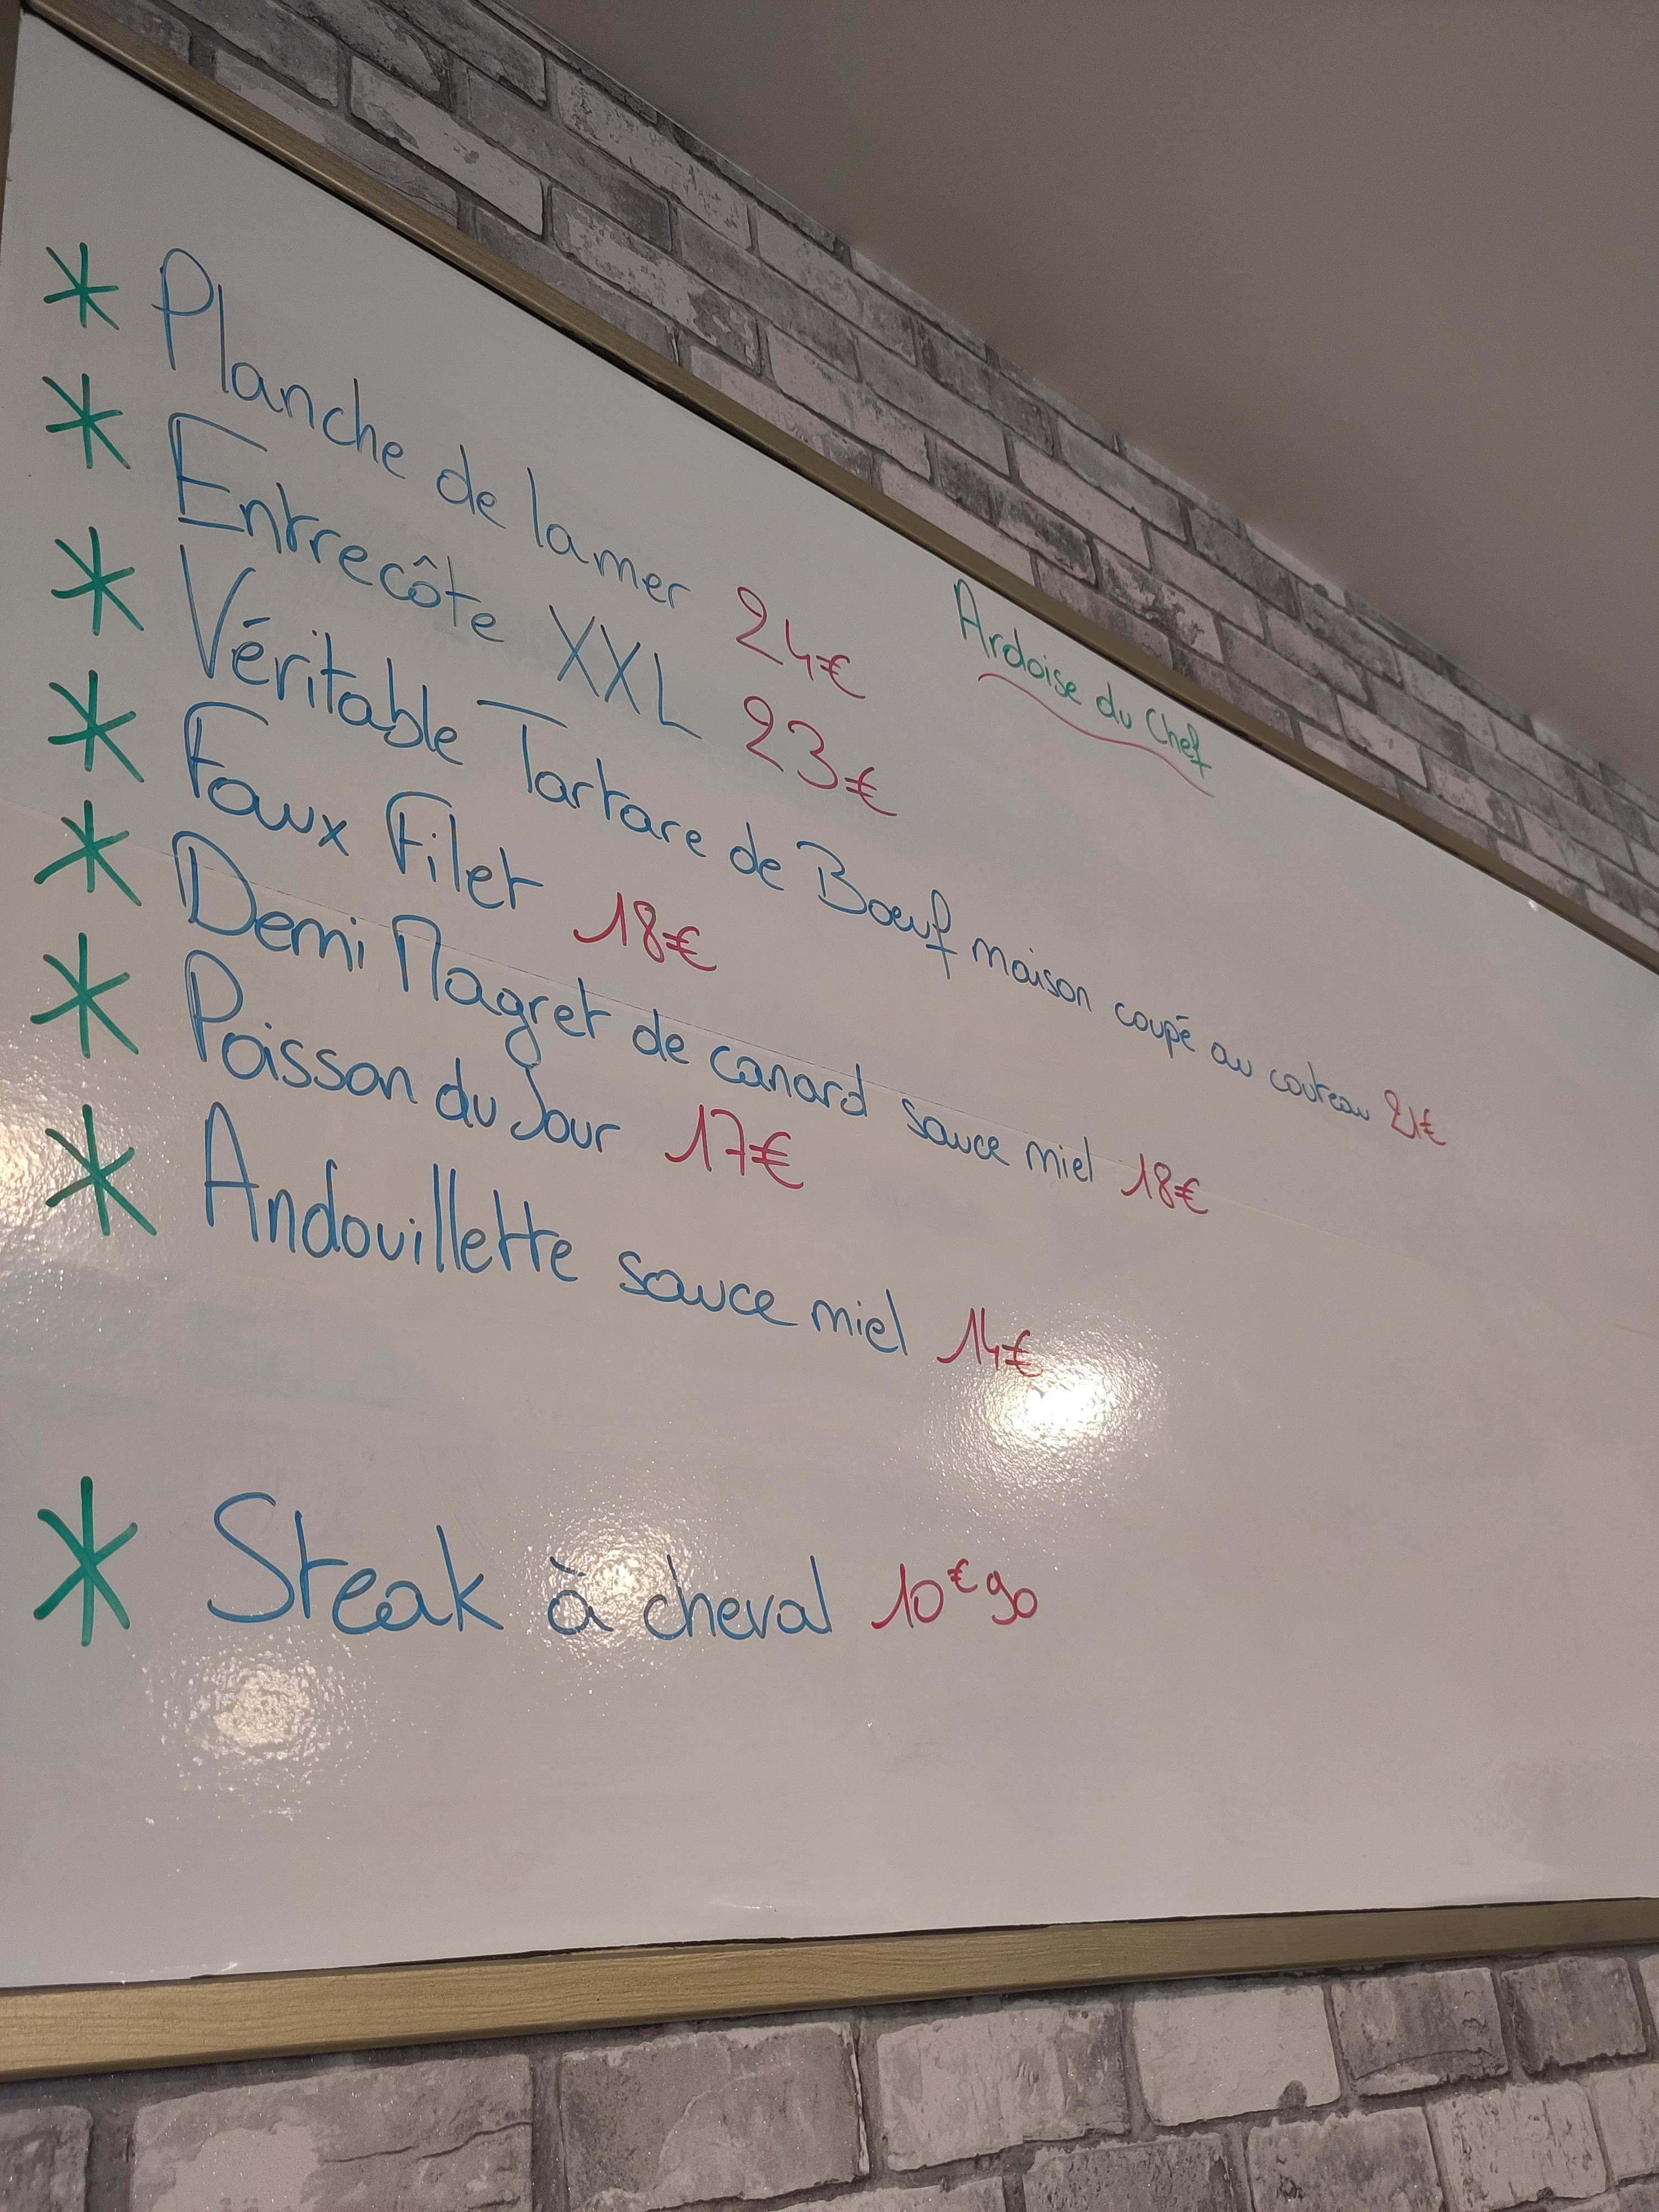 Ardoise du Chef
* Planche de la mer 24€
* Entrecôte XXL 23€
* Véritable Tartare de Bœuf maison coupé au couteau 21€
* Faux Filet 18€
* Demi Magret de canard sauce miel 18€
* Poisson du Jour 17€
* Andouillette sauce miel 14€
* Steak à cheval 10€90